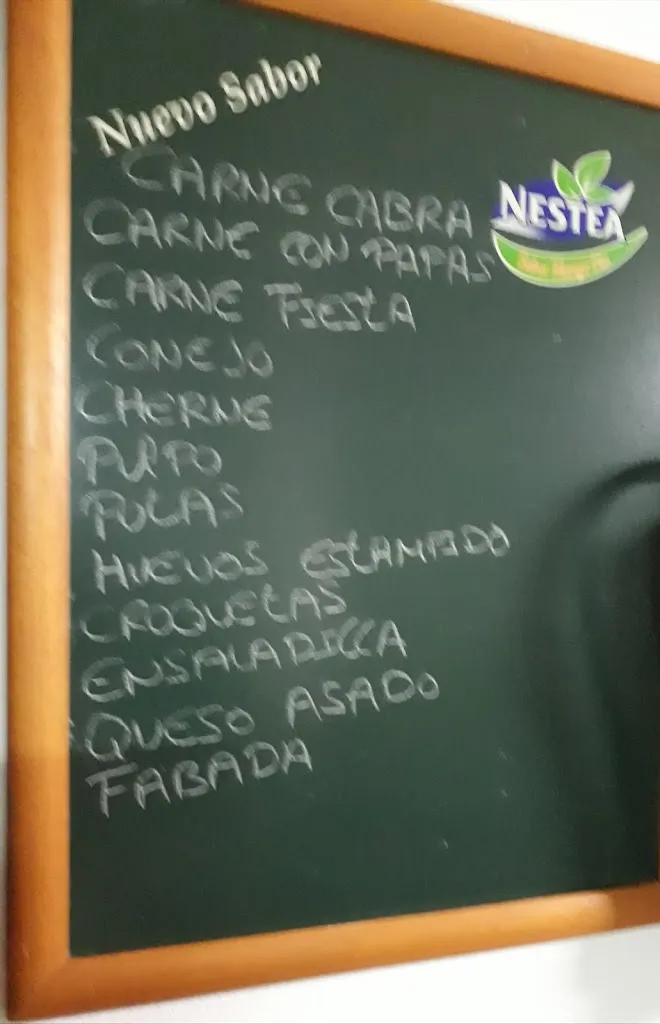 Nuevo Sabor
NESTEA
CARNE CABRA
CARNE CON PAPAS
CARNE FIESTA
CONEJO
CHERNE
PULPO
POTAS
HUEVOS ESTAMPIDO
CROQUETAS
ENSALADILLA
QUESO ASADO
FABADA